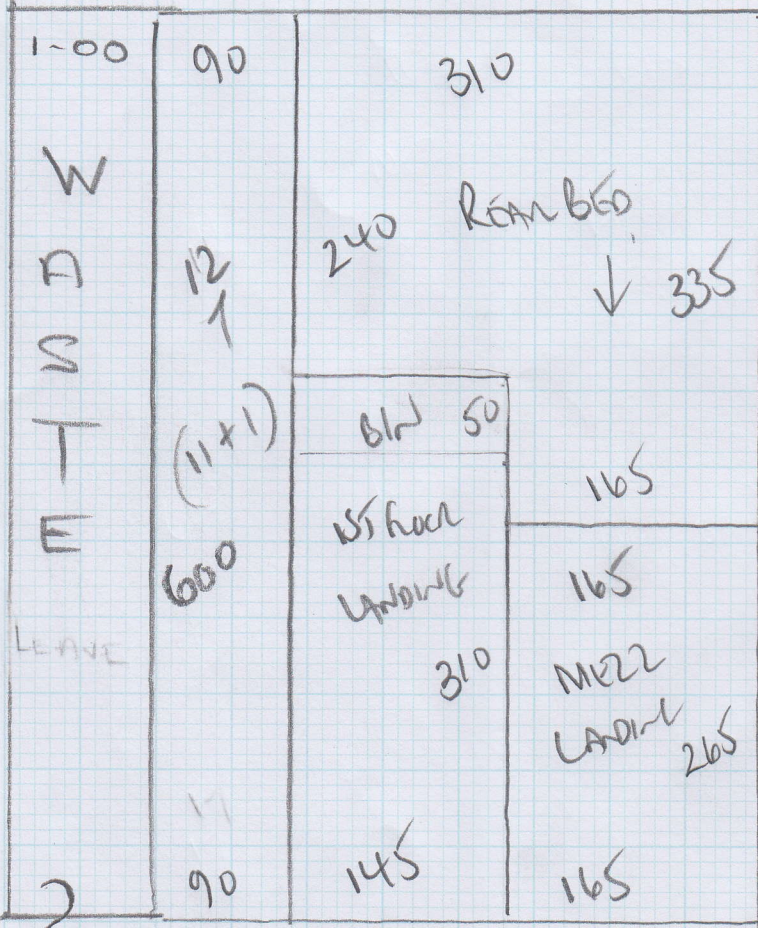 1-00
W
A
S
T
E
LEAVE
90
12
1
(11+1)
600
17
90
310
REAR BED
240
335
165
BIN 50
1ST FLOOR
LANDING
310
145
165
MEZZ
LANDING
265
165